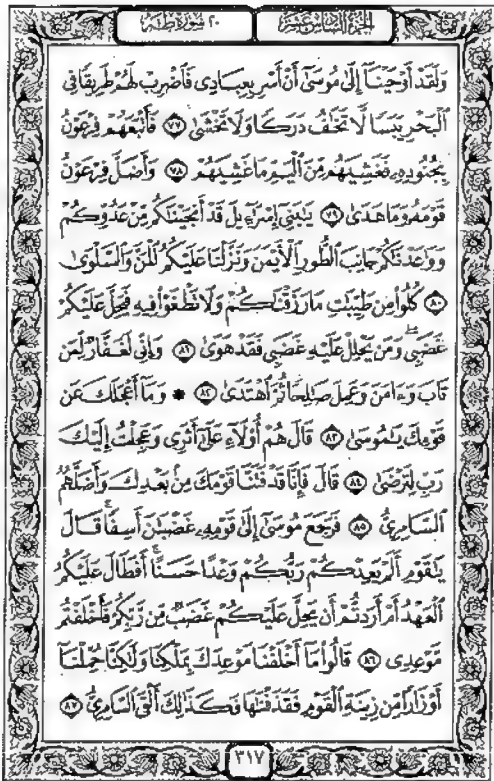 الجزء السادس عشر ٢٠ سورة طه
وَلَقَدْ أَوْحَيْنَآ إِلَىٰ مُوسَىٰٓ أَنْ أَسْرِ بِعِبَادِى فَٱضْرِبْ لَهُمْ طَرِيقًا فِى
ٱلْبَحْرِ يَبَسًا لَّا تَخَٰفُ دَرَكًا وَلَا تَخْشَىٰ ٧٧ فَأَتْبَعَهُمْ فِرْعَوْنُ
بِجُنُودِهِۦ فَغَشِيَهُم مِّنَ ٱلْيَمِّ مَا غَشِيَهُمْ ٧٨ وَأَضَلَّ فِرْعَوْنُ
قَوْمَهُۥ وَمَا هَدَىٰ ٧٩ يَٰبَنِىٓ إِسْرَٰٓءِيلَ قَدْ أَنجَيْنَٰكُم مِّنْ عَدُوِّكُمْ
وَوَٰعَدْنَٰكُمْ جَانِبَ ٱلطُّورِ ٱلْأَيْمَنَ وَنَزَّلْنَا عَلَيْكُمُ ٱلْمَنَّ وَٱلسَّلْوَىٰ
٨٠ كُلُوا۟ مِن طَيِّبَٰتِ مَا رَزَقْنَٰكُمْ وَلَا تَطْغَوْا۟ فِيهِ فَيَحِلَّ عَلَيْكُمْ
غَضَبِى ۖ وَمَن يَحْلِلْ عَلَيْهِ غَضَبِى فَقَدْ هَوَىٰ ٨١ وَإِنِّى لَغَفَّارٌ لِّمَن
تَابَ وَءَامَنَ وَعَمِلَ صَٰلِحًا ثُمَّ ٱهْتَدَىٰ ٨٢ * وَمَآ أَعْجَلَكَ عَن
قَوْمِكَ يَٰمُوسَىٰ ٨٣ قَالَ هُمْ أُو۟لَآءِ عَلَىٰٓ أَثَرِى وَعَجِلْتُ إِلَيْكَ
رَبِّ لِتَرْضَىٰ ٨٤ قَالَ فَإِنَّا قَدْ فَتَنَّا قَوْمَكَ مِنۢ بَعْدِكَ وَأَضَلَّهُمُ
ٱلسَّامِرِىُّ ٨٥ فَرَجَعَ مُوسَىٰٓ إِلَىٰ قَوْمِهِۦ غَضْبَٰنَ أَسِفًا ۚ قَالَ
يَٰقَوْمِ أَلَمْ يَعِدْكُمْ رَبُّكُمْ وَعْدًا حَسَنًا ۚ أَفَطَالَ عَلَيْكُمُ
ٱلْعَهْدُ أَمْ أَرَدتُّمْ أَن يَحِلَّ عَلَيْكُمْ غَضَبٌ مِّن رَّبِّكُمْ فَأَخْلَفْتُم
مَّوْعِدِى ٨٦ قَالُوا۟ مَآ أَخْلَفْنَا مَوْعِدَكَ بِمَلْكِنَا وَلَٰكِنَّا حُمِّلْنَآ
أَوْزَارًا مِّن زِينَةِ ٱلْقَوْمِ فَقَذَفْنَٰهَا فَكَذَٰلِكَ أَلْقَى ٱلسَّامِرِىُّ ٨٧
٣١٧